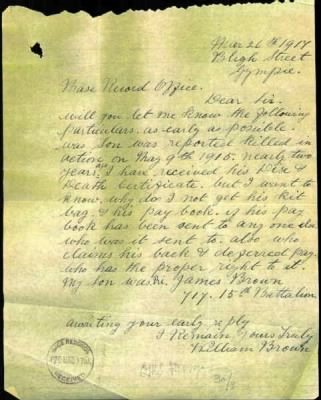 Mar 26th 1917
Bligh Street
Gympie.
Base Record Office.
Dear Sir.
will you let me know the following
particulars. as early as possible.
was son was reported killed in
action on May 9th 1915. nearly two
years, I have received his Disc &
Death Certificate. but I want to
know. why do I not get his kit
bag. & his pay book. if his pay
book has been sent to any one else
who was it sent to. also who
claims his back & deferred pay.
who has the proper right to it.
My son was. James Brown
717. 15th Battalion
awaiting your early reply
I Remain Yours Truly
William Brown
BASE RECORDS
RECEIVED